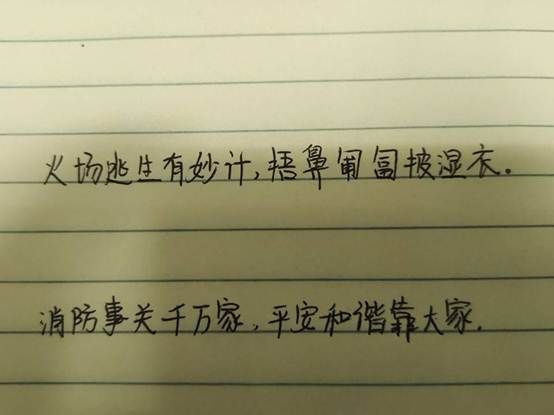 火场逃生有妙计,捂鼻匍匐披湿衣。
消防事关千万家,平安和谐靠大家.